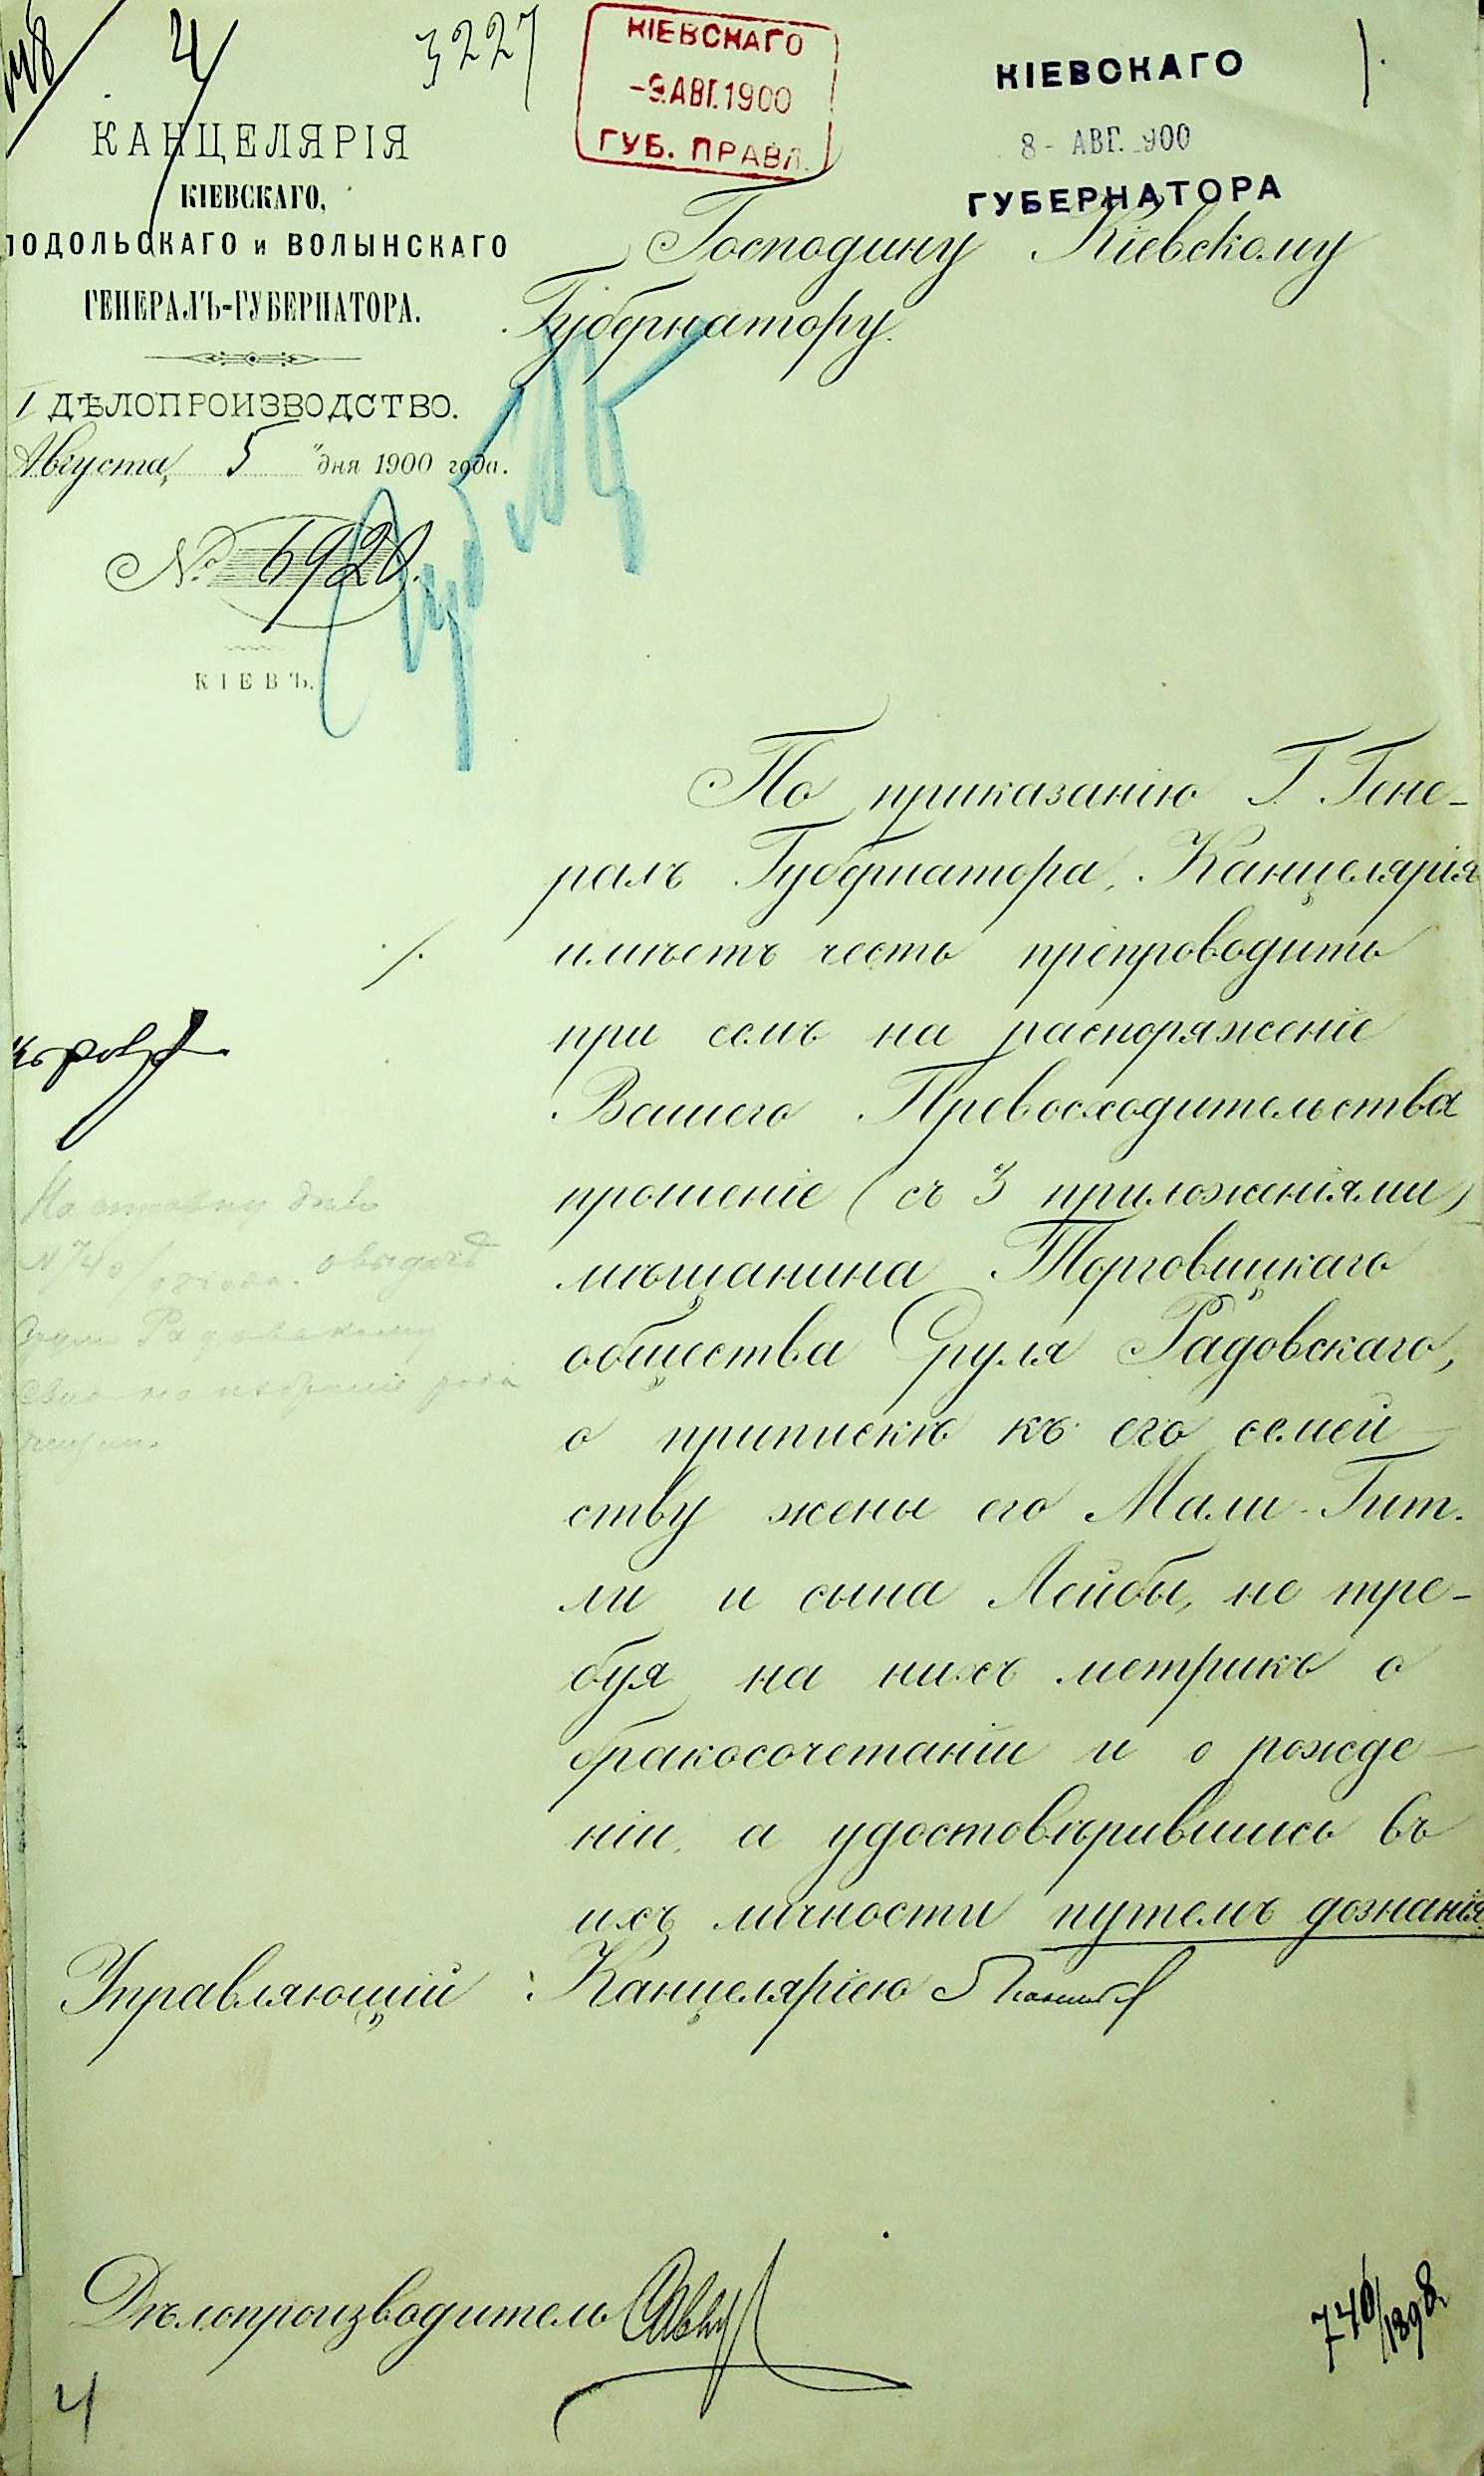 4
3227
КІЕВСКАГО
-9.АВГ.1900
ГУБ. ПРАВЛ.
КІЕВСКАГО
8- АВГ. 900
ГУБЕРНАТОРА
1.
КАНЦЕЛЯРІЯ
КІЕВСКАГО,
ПОДОЛЬСКАГО и ВОЛЫНСКАГО
ГЕНЕРАЛЪ-ГУБЕРНАТОРА.
I ДѢЛОПРОИЗВОДСТВО.
Августа, 5 "дня 1900 года.
№ 6920.
КІЕВЪ.
Господину Кіевскому
Губернатору.
По приказанію Г. Гене-
ралъ Губернатора, Канцелярія
имѣетъ честь препроводить
при семъ на распоряженіе
Вашего Превосходительства
прошеніе (съ 3 приложеніями)
мѣщанина Торговицкаго
общества Сруля Радовскаго,
о припискѣ къ его семей-
ству жены его Мали-Гит-
ли и сына Лейбы, не тре-
буя на нихъ метрикъ о
бракосочетаніи и о рожде-
ніи, а удостовѣрившись въ
ихъ личности путемъ дознанія.
Управляющій Канцеляріею
Дѣлопроизводитель
740/1898
4